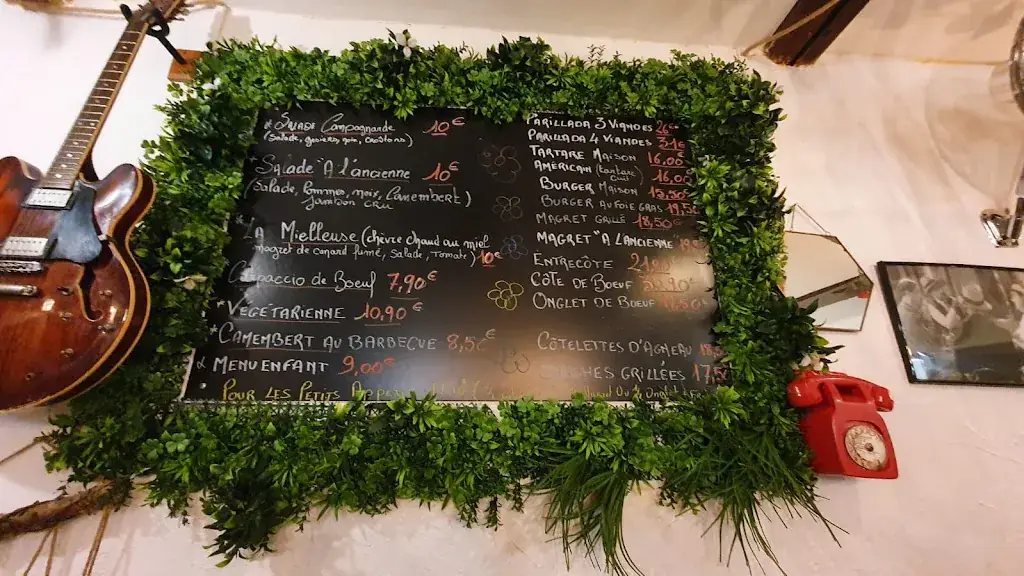 * Salade Campagnarde 10€
(Salade, gésiers, noix, croûtons)
* Salade "A l'ancienne 10€
(Salade, Pommes, noix, Camembert)
Jambon cru
LA Mielleuse (chèvre chaud au miel
magret de canard fumé, salade, tomate) 10€
Carpaccio de Boeuf 7,90€
* VEGETARIENNE 10,90€
* CAMEMBERT AU BARBECUE 8,50€
MENU ENFANT 9,00€
POUR LES PETITS
PARILLADA 3 VIANDES 26€
PARILLADA 4 VIANDES 31€
TARTARE MAISON 16,00
AMERICAIN (tartare 16,00
BURGER MAISON 15,50
BURGER AU FOIE GRAS 19,50€
MAGRET GRILLÉ 18,50€
MAGRET "A L'ANCIENNE
ENTRECÔTE
CÔTE DE BOEUF
ONGLET DE BOEUF
CÔTELETTES D'AGNEAU
GRILLÉES